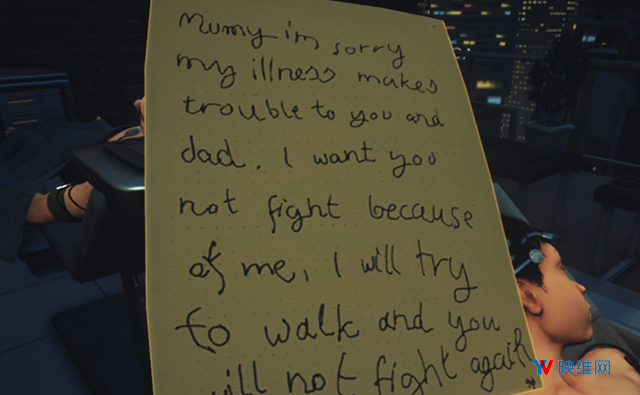 Mumy i'm sorry
my illness makes
trouble to you and
dad. I want you
not fight because
of me, I will try
to walk and you
will not fight again
映维网